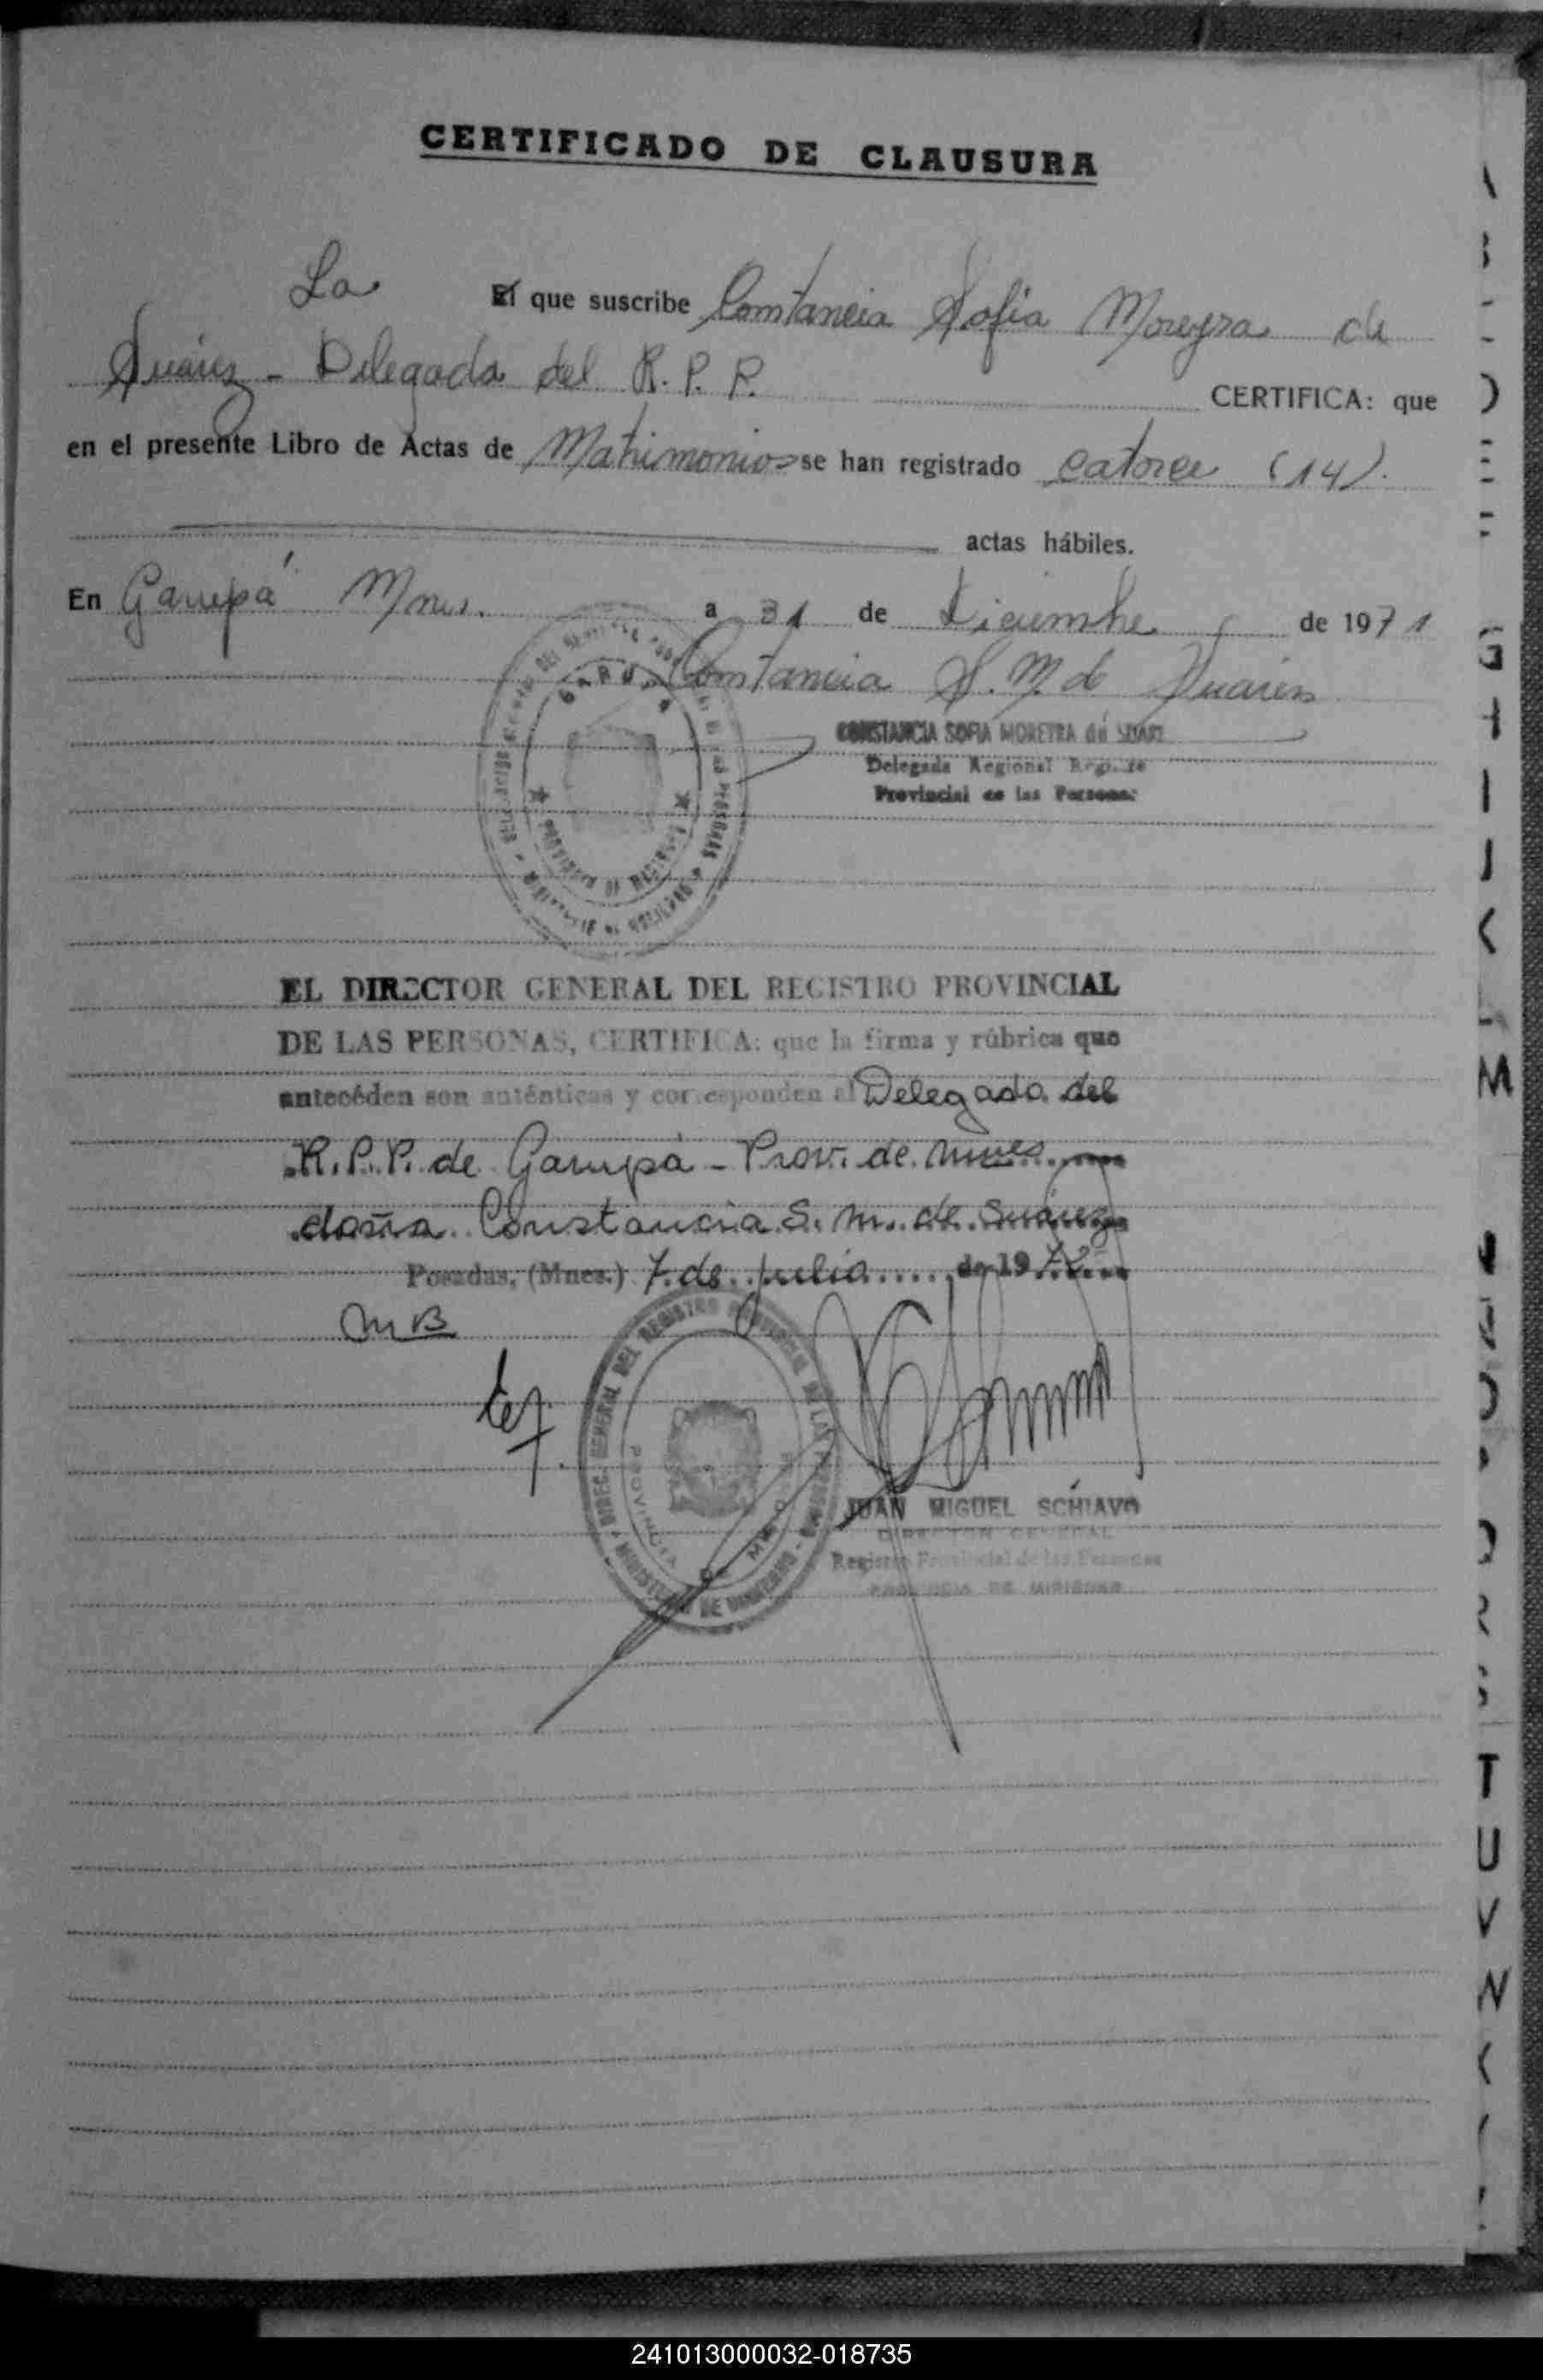 CERTIFICADO DE CLAUSURA
La El que suscribe Constancia Sofia Moreyra de
Suárez - Delegada del R. P. P. CERTIFICA: que
en el presente Libro de Actas de Matrimonios se han registrado catorce (14).
actas hábiles.
En Garupá Mnes. a 31 de Diciembre de 1971
Constancia S. M. de Suárez
CONSTANCIA SOFIA MOREYRA de SUAREZ
Delegada Regional
Provincial de las Personas
GARUPA
PROVINCIA DE MISIONES
EL DIRECTOR GENERAL DEL REGISTRO PROVINCIAL
DE LAS PERSONAS, CERTIFICA: que la firma y rúbrica que
anteceden son auténticas y corresponden al Delegada del
R.P.P. de Garupá - Prov. de Mnes
doña Constancia S. M. de Suárez
Posadas, (Mnes.) 7 de julio de 1972
MB
DIREC. GENERAL DEL REGISTRO PROVINCIAL DE LAS PERSONAS
MINISTERIO DE GOBIERNO
PROVINCIA DE MISIONES
JUAN MIGUEL SCHIAVO
DIRECTOR GENERAL
Registro Provincial de las Personas
PROVINCIA DE MISIONES
M
T
U
V
241013000032-018735